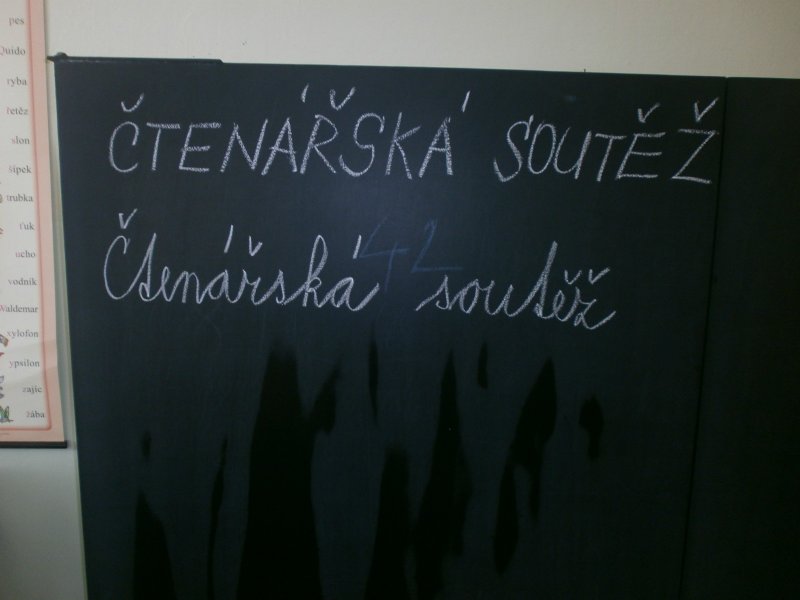 pes
Quido
ryba
řetěz
slon
šípek
trubka
ťuk
ucho
vodník
Waldemar
xylofon
ypsilon
zajíc
žába
ČTENÁŘSKÁ SOUTĚŽ
Čtenářská soutěž
42